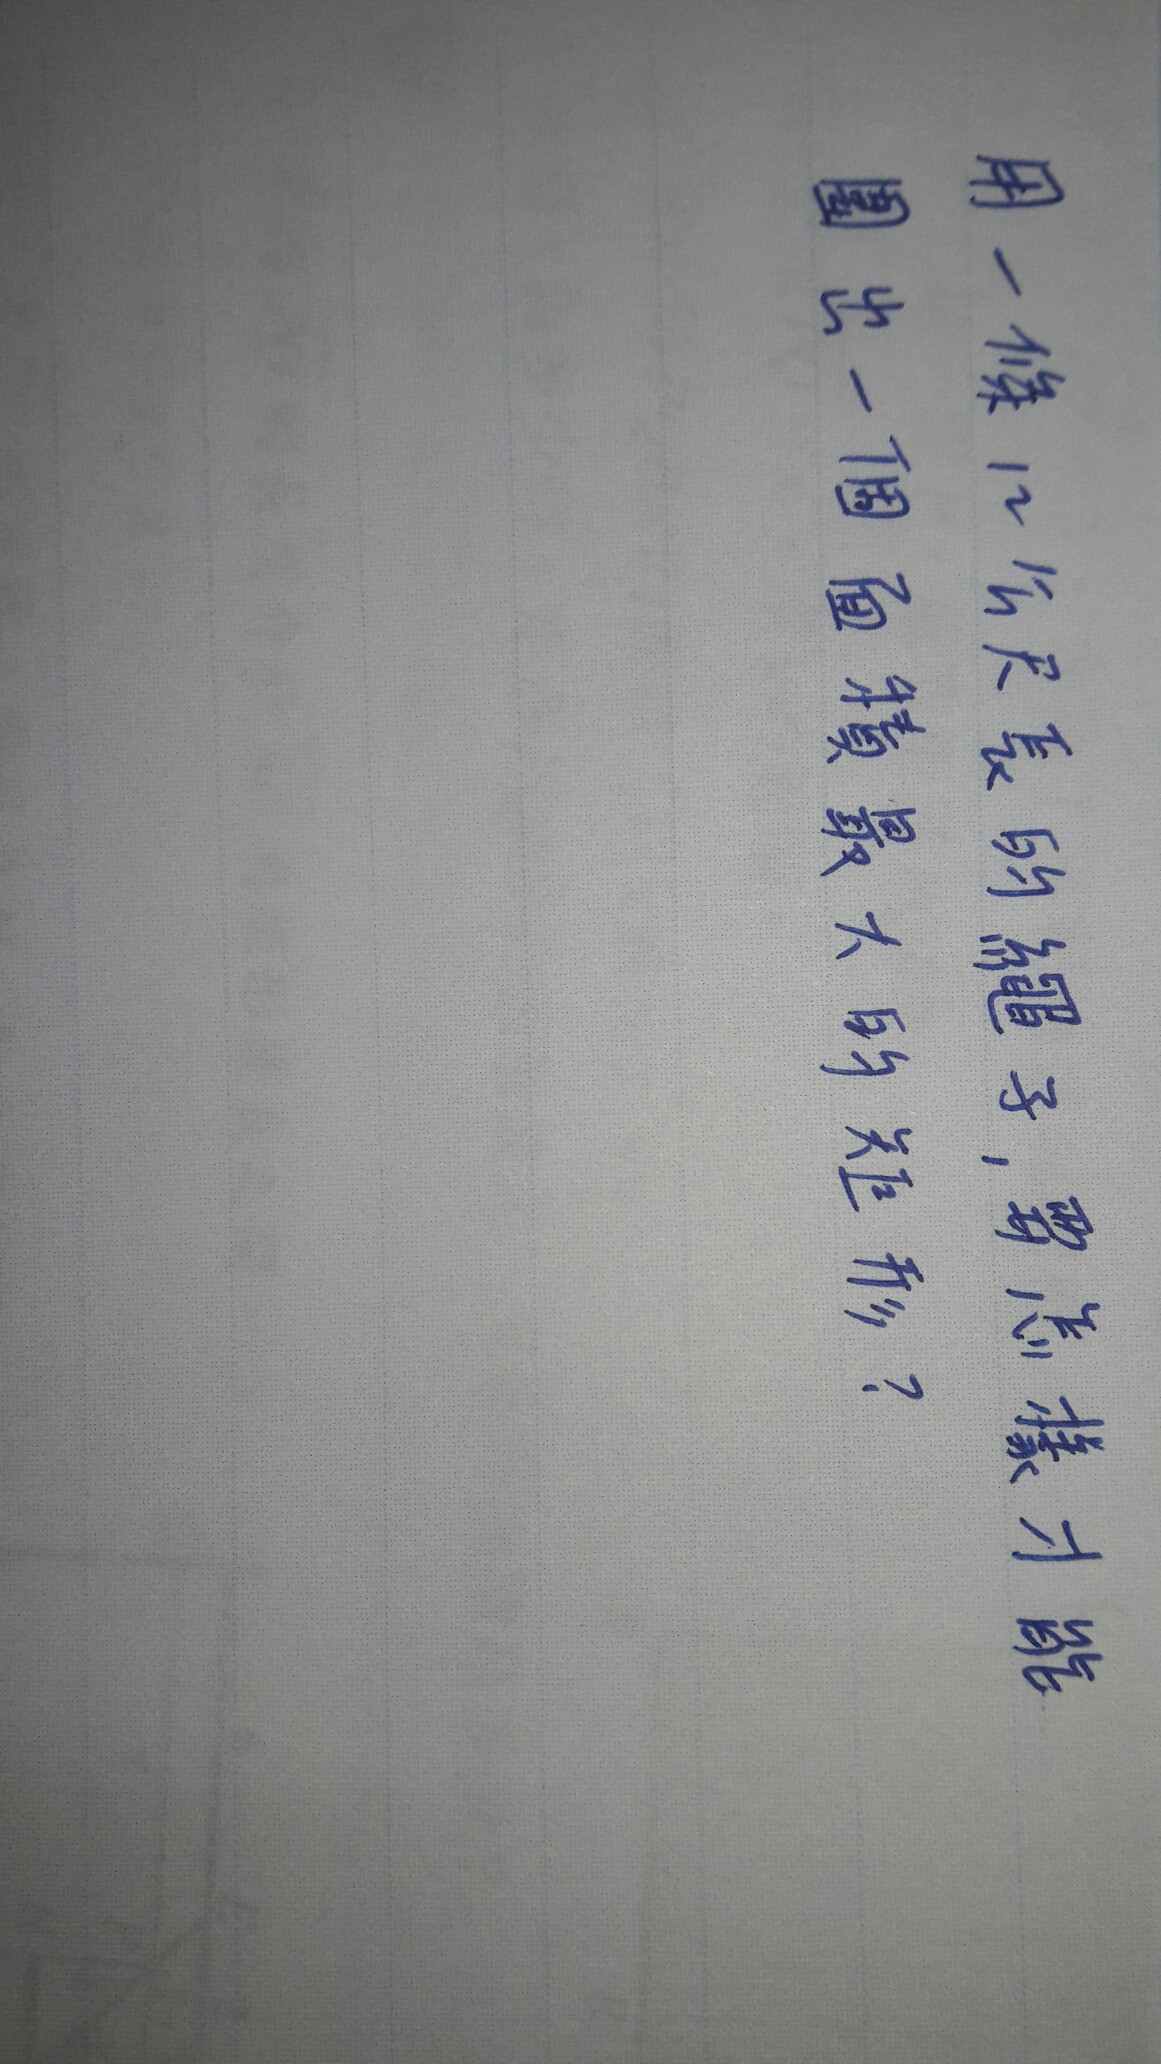 用一條12公尺長的繩子,要怎樣才能
圍出一個面積最大的矩形?